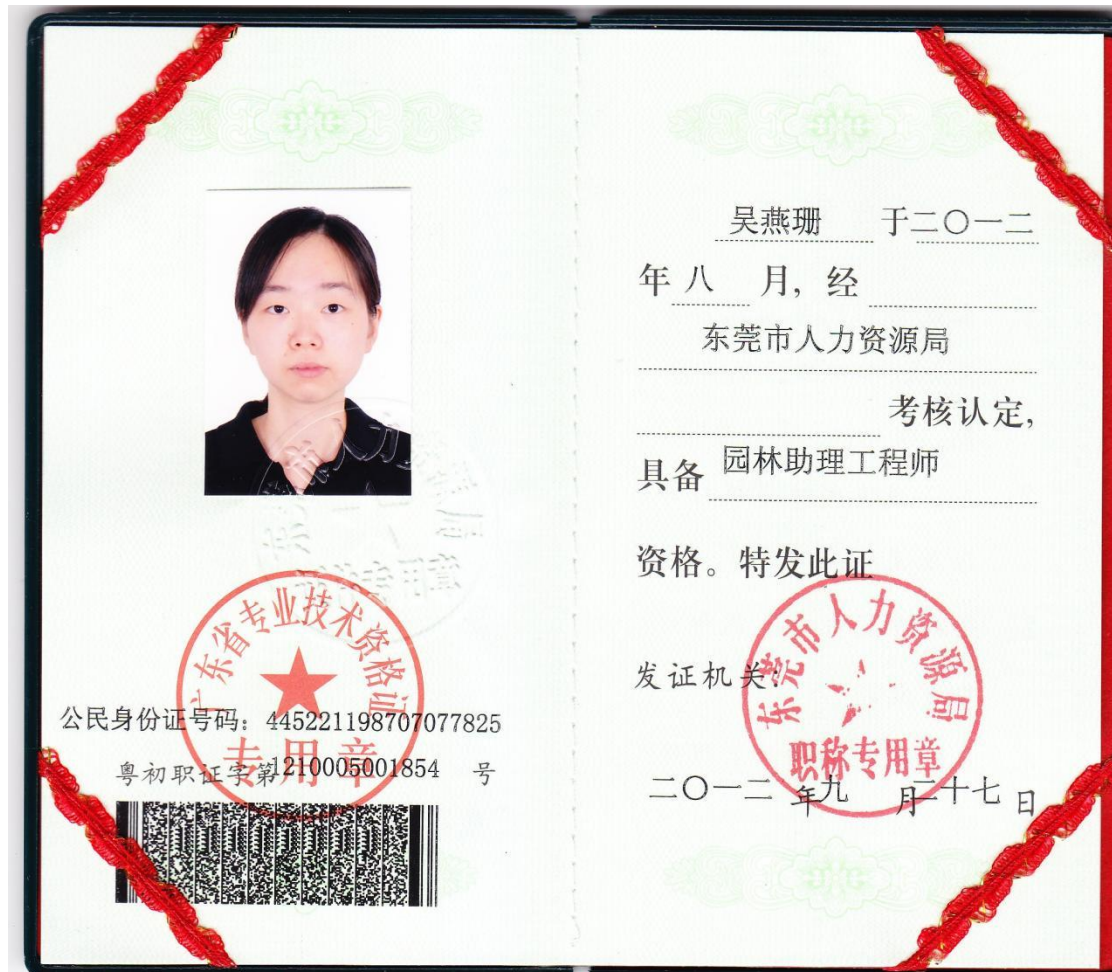 广东省专业技术资格证
专用章
公民身份证号码：445221198707077825
粤初职证字第1210005001854 号
吴燕珊 于二〇一二
年 八 月，经
东莞市人力资源局
考核认定，
具备 园林助理工程师
资格。特发此证
发证机关：
东莞市人力资源局
职称专用章
二〇一二 年九 月二十七日